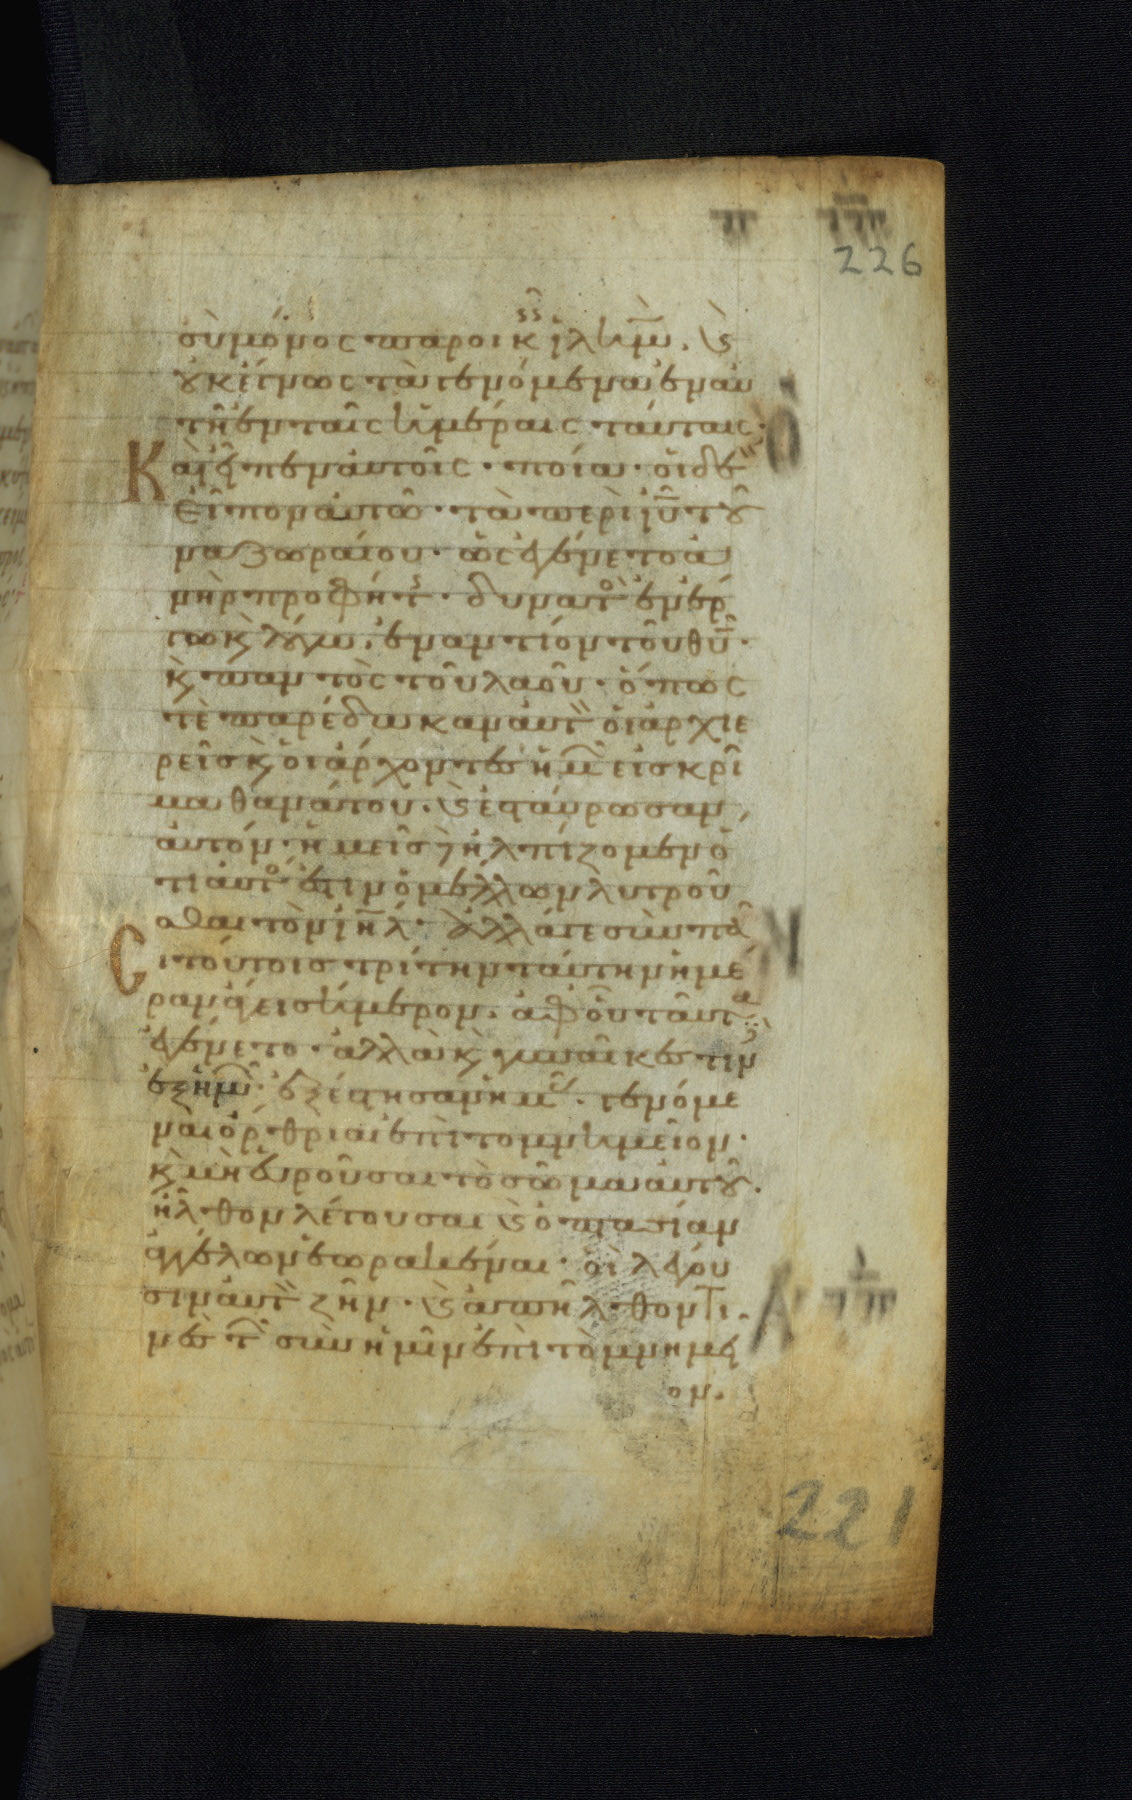 226
σὺ μόνος παροικεῖς ἰλῆμ. καὶ
οὐκ ἔγνως τὰ γενόμενα ἐν αὐ
τῇ ἐν ταῖς ἡμέραις ταύταις·
Καὶ εἶπεν αὐτοῖς· ποῖα· οἱ δὲ
εἶπον αὐτῶ· τὰ περὶ ἰῦ τοῦ
ναζωραίου· ὡς ἐγένετο ἀ
νὴρ προφήτης· δυνατὸς ἐν ἔρ
γω κ λόγω, ἐναντίον τοῦ θῦ·
κ παντὸς τοῦ λαοῦ· ὅπως
τὲ παρέδωκαν αὐτὸν οἱ ἀρχιε
ρεῖς κ οἱ ἄρχοντες ἡμῶν εἰς κρῖ
μα θανάτου. καὶ ἐσταύρωσαν
αὐτόν· ἡμεῖς δὲ ἠλπίζομεν ὅ
τι αὐτός ἐστιν ὁ μέλλων λυτροῦ
σθαι τὸν ἰηλ· ἀλλά γε σὺν πᾶ
σι τούτοις τρίτην ταύτην ἡμέ
ραν ἄγει σήμερον. ἀφ οὗ ταῦτα
ἐγένετο· ἀλλὰ κ γυναῖκες τινὲς
ἐξ ἡμῶν ἐξέστησαν ἡμᾶς. γενόμε
ναι ὄρθριαι ἐπὶ τὸ μνημεῖον·
κ μὴ εὑροῦσαι τὸ σῶμα αὐτοῦ.
ἦλθον λέγουσαι καὶ ὀπτασίαν
ἀγγέλων ἑωρακέναι· οἳ λέγου
σιν αὐτὸν ζῆν. καὶ ἀπῆλθόν τι
νες τῶν σὺν ἡμῖν ἐπὶ τὸ μνημεῖ
ον.
221